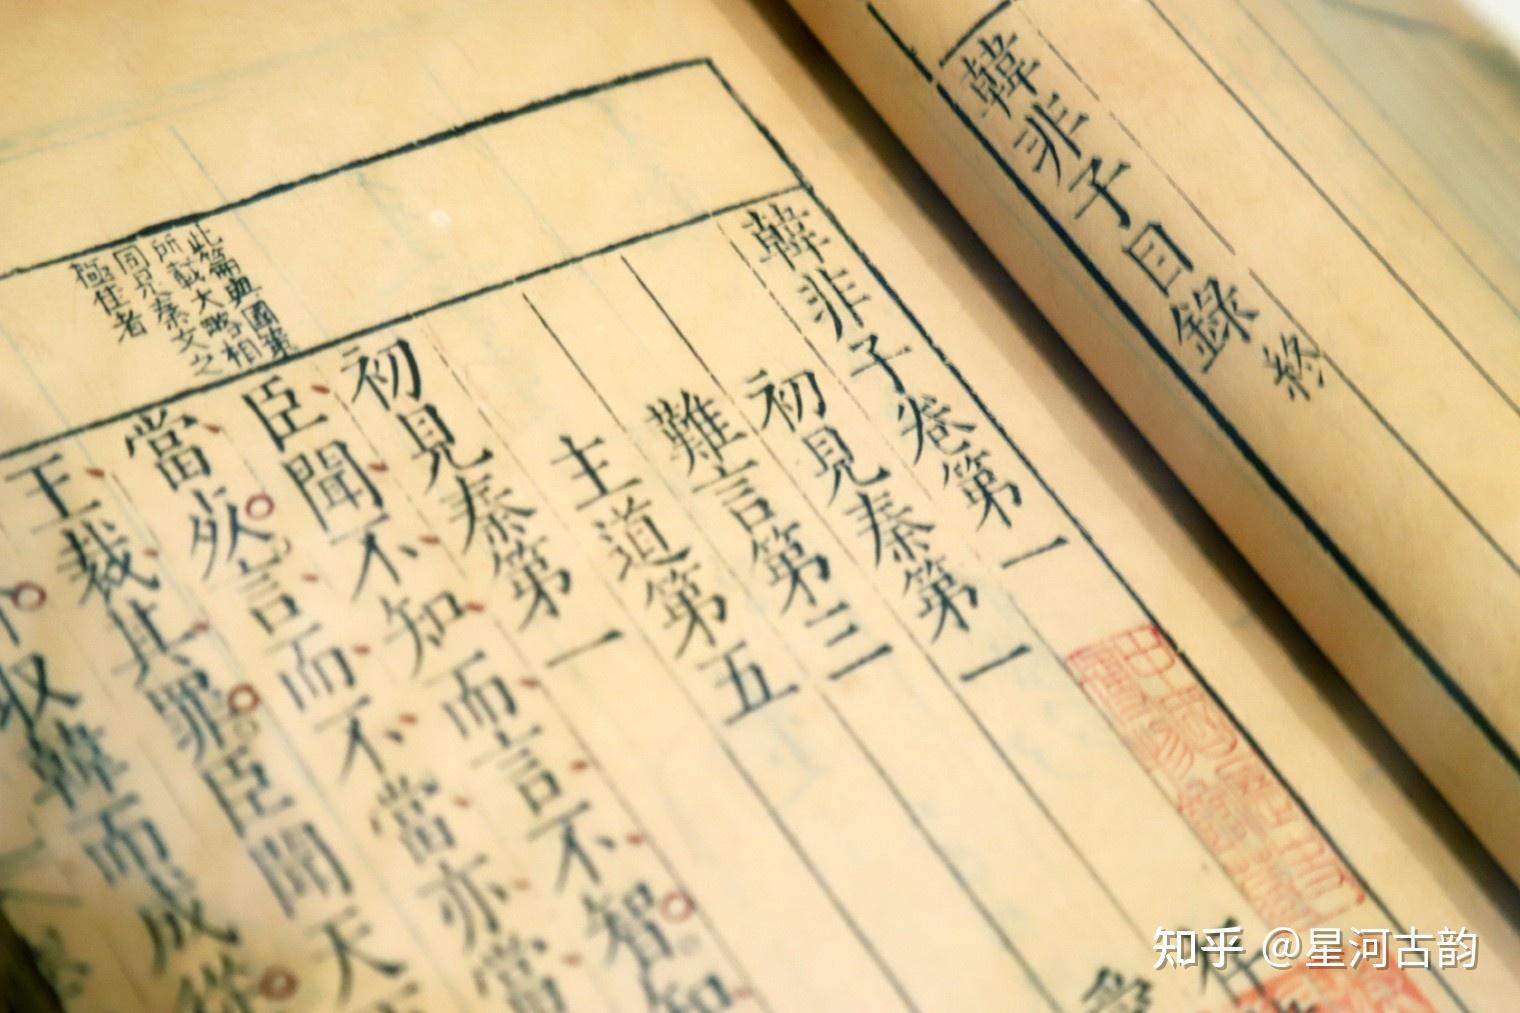 韓非子目錄終
韓非子卷第一
初見秦第一
難言第三
主道第五
初見秦第一
臣聞不知而言不智知
當死言而不當亦當
王裁其罪臣聞天
收韓而成從
此篇與國策
所載大略相
同先秦文之
極佳者
知乎 @星河古韵